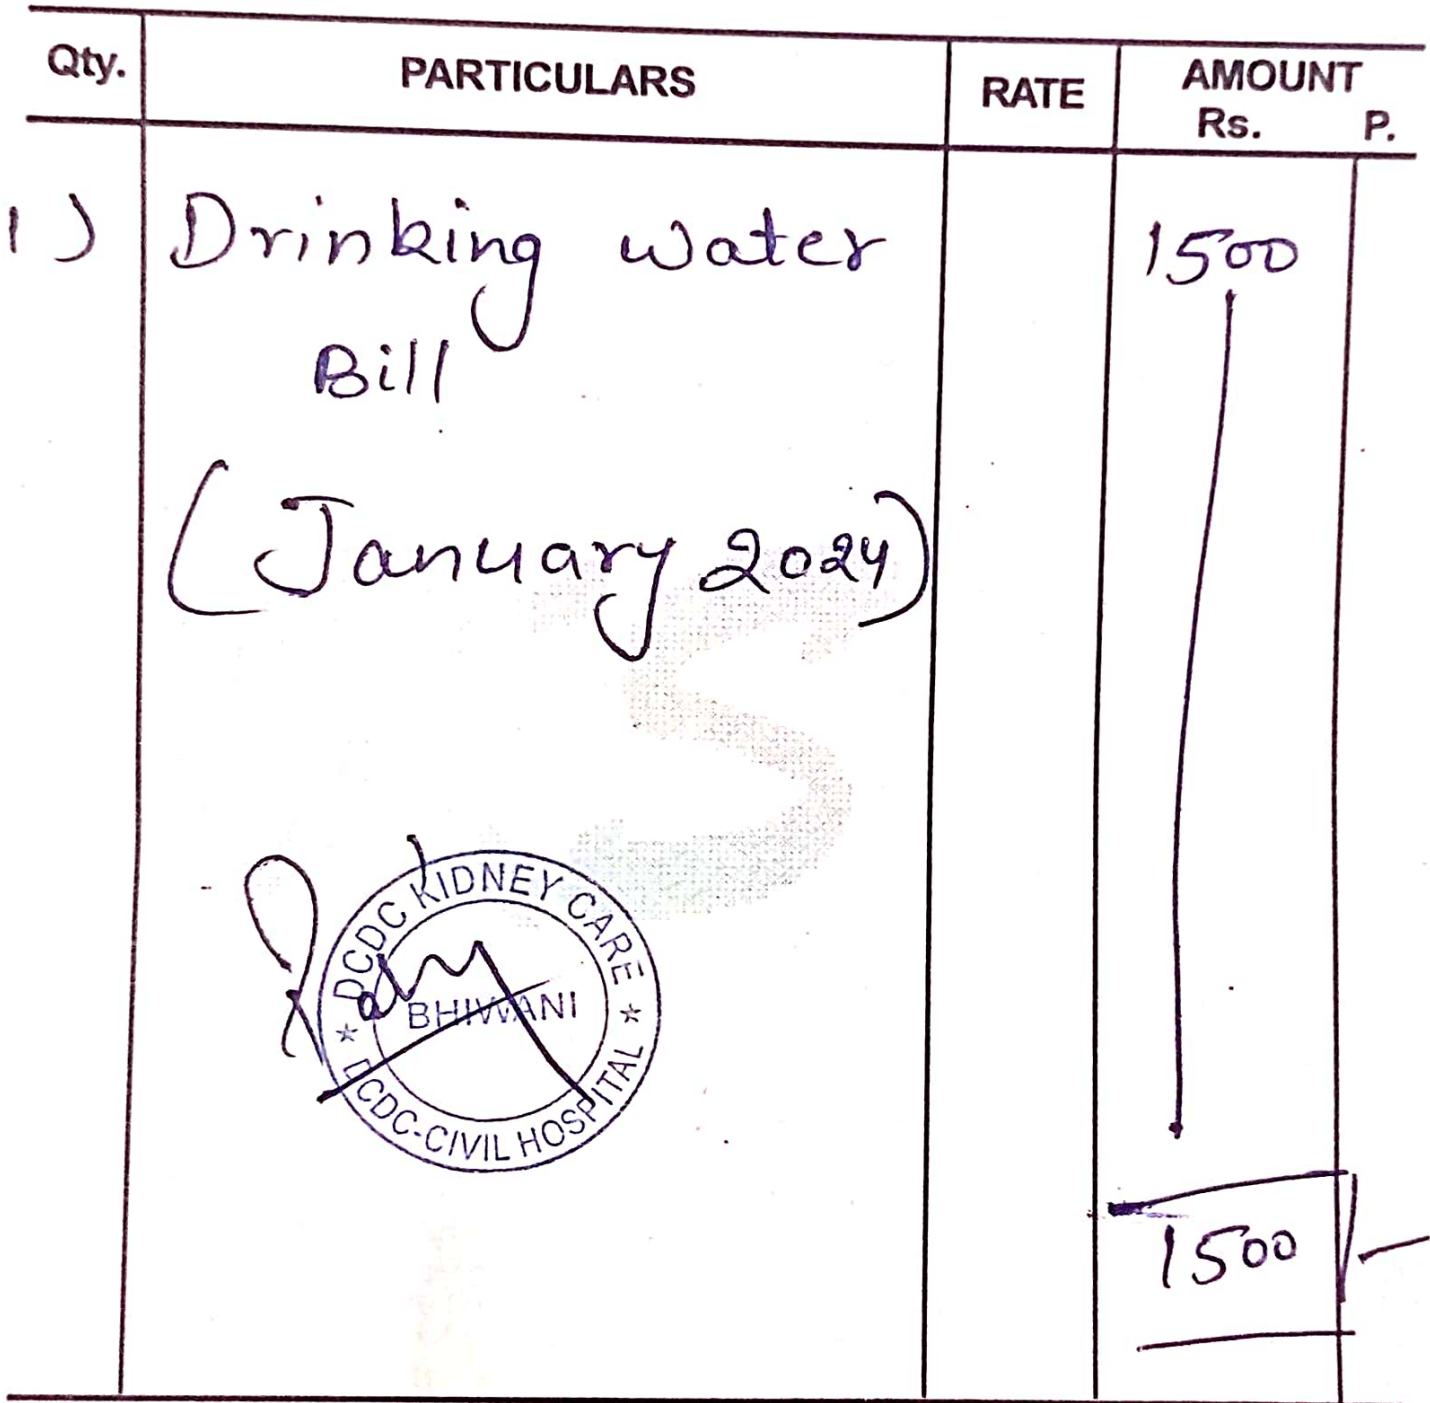 Qty. PARTICULARS RATE AMOUNT
Rs. P.
1) Drinking water 1500
Bill
(January 2024)
DCDC KIDNEY CARE
BHIWANI
DCDC-CIVIL HOSPITAL
1500/-